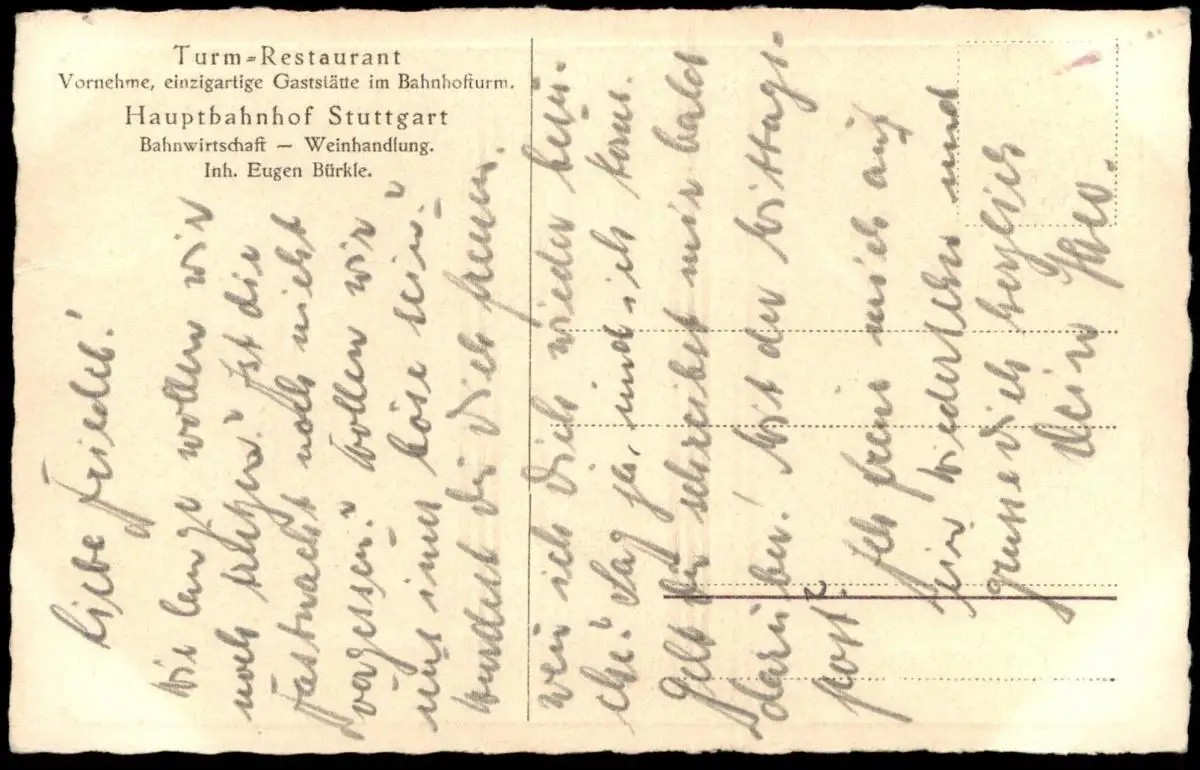 Turm-Restaurant
Vornehme, einzigartige Gaststätte im Bahnhofturm.
Hauptbahnhof Stuttgart
Bahnwirtschaft — Weinhandlung.
Inh. Eugen Bürkle.
Liebe Friedel!
Wie lange wollen wir
noch? Ist die
Fastnacht noch nicht
vergessen? Wollen wir
uns immer böse sein?
Würdest du dich freuen
wen ich dich wieder besu-
che? Sag ja, und ich komm.
Gelt du schreibst mir bald
darüber! Mit der Mittags-
post? Ich freue mich auf
ein Wiedersehn und
grüsse dich herzlich
dein